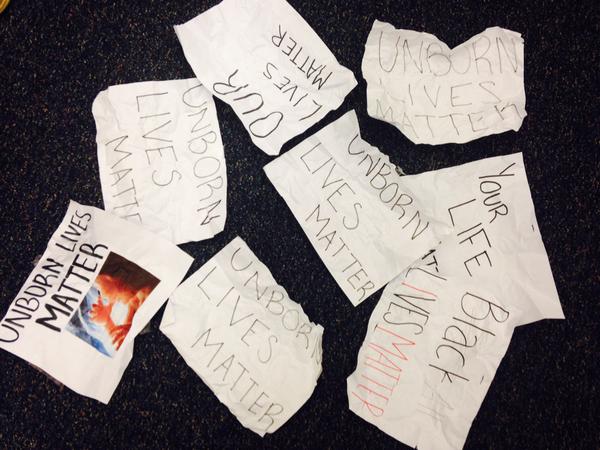 OUR
LIVES
MATTER
UNBORN
LIVES
MATTER
UNBORN
LIVES
MATT
UNBORN
LIVES
MATTER
YOUR
LIFE
UNBORN LIVES
MATTER
UNBORN
LIVES
MATTER
Black
LIVES MATTER